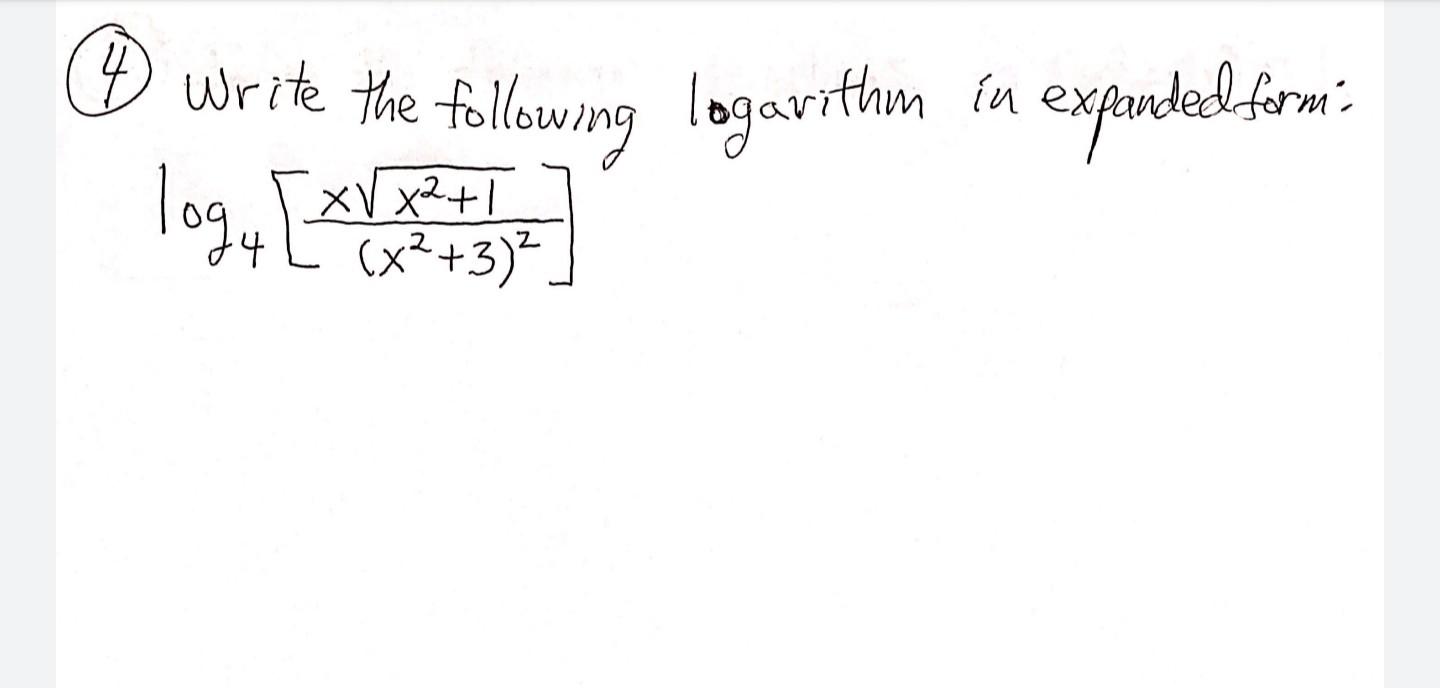 ④ Write the following logarithm in expanded form:
log₄ [x√(x²+1) / (x²+3)²]